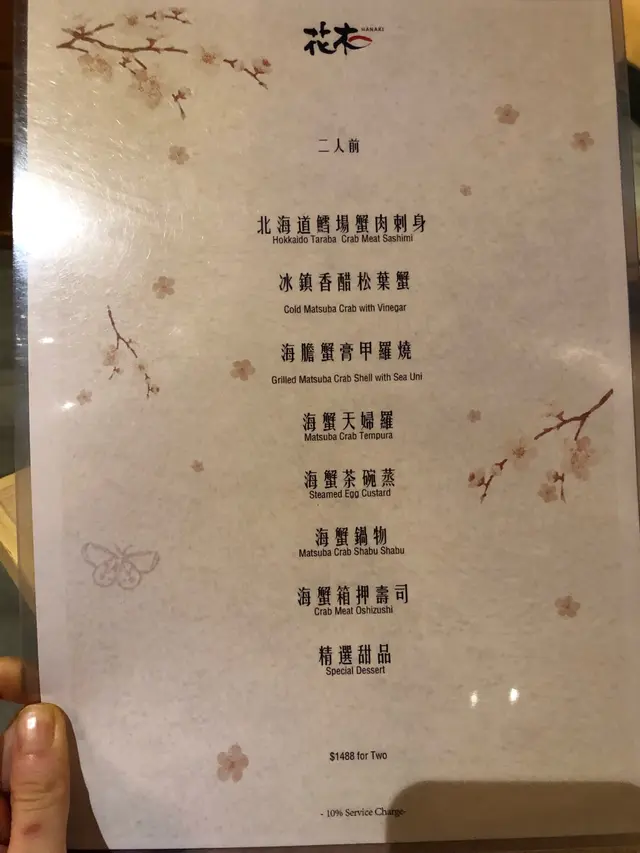 花木 HANAKI
二人前
北海道鱈場蟹肉刺身
Hokkaido Taraba Crab Meat Sashimi
冰鎮香醋松葉蟹
Cold Matsuba Crab with Vinegar
海膽蟹膏甲羅燒
Grilled Matsuba Crab Shell with Sea Uni
海蟹天婦羅
Matsuba Crab Tempura
海蟹茶碗蒸
Steamed Egg Custard
海蟹鍋物
Matsuba Crab Shabu Shabu
海蟹箱押壽司
Crab Meat Oshizushi
精選甜品
Special Dessert
$1488 for Two
- 10% Service Charge-